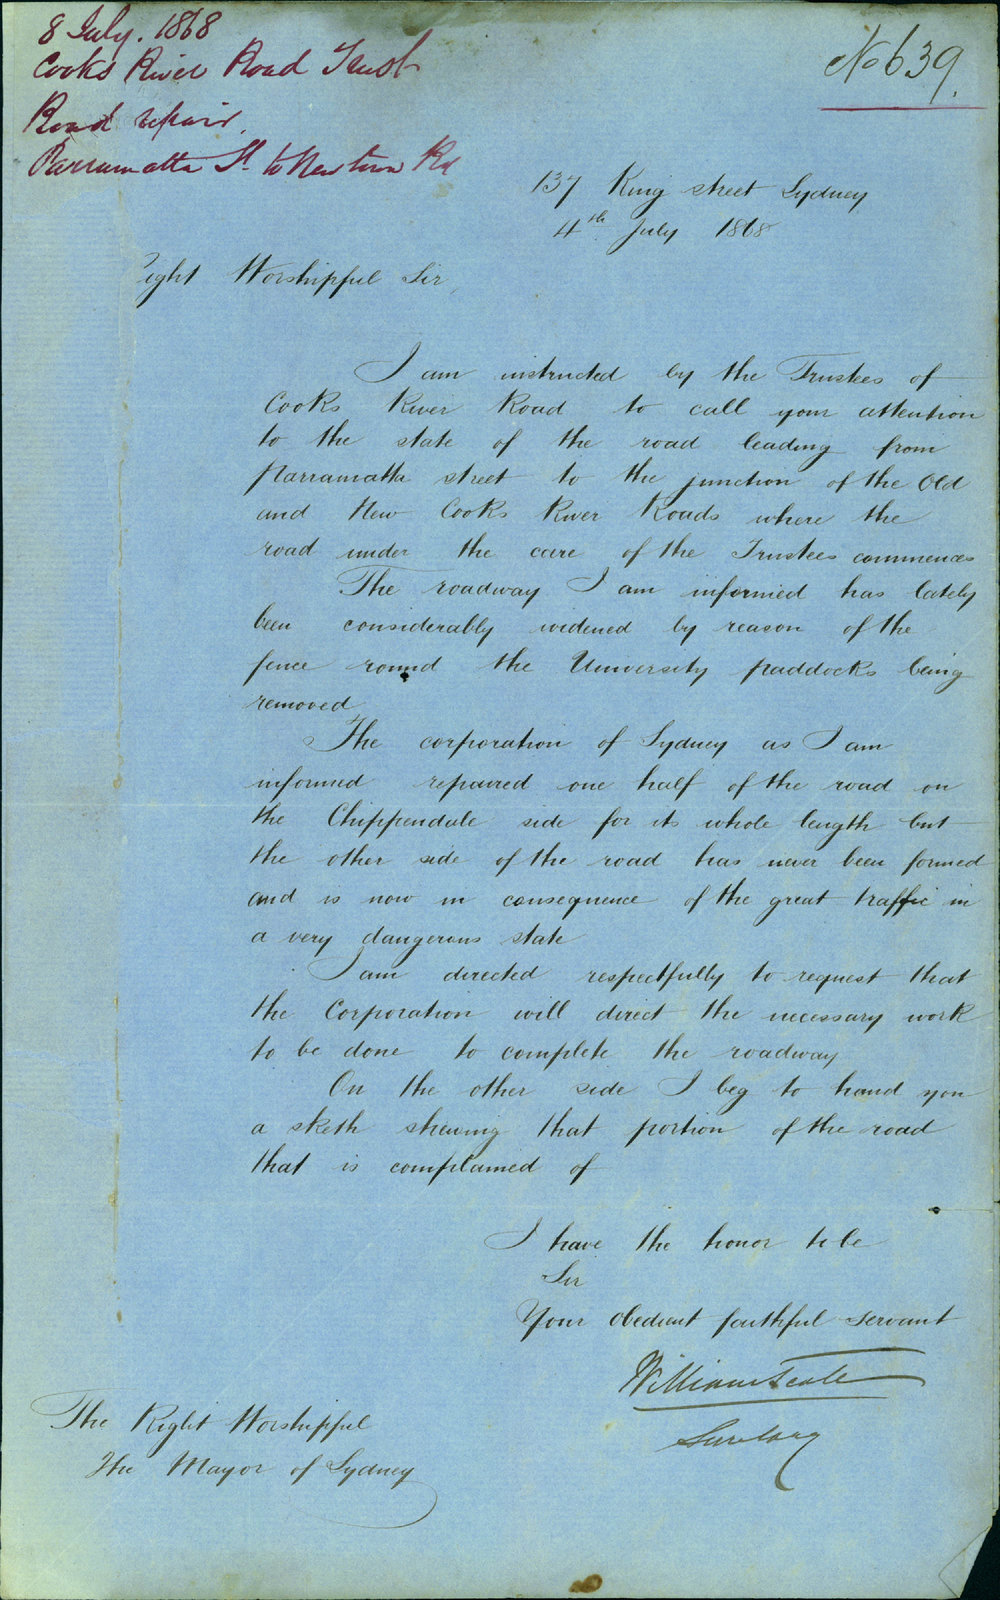 8 July. 1868
Cooks River Road Trust
Road repair.
Parramatta St. to Newtown Rd
No 639.
137 King street Sydney
4th July 1868
Right Worshipful Sir
I am instructed by the Trustees of
Cooks River Road to call your attention
to the state of the road leading from
Parramatta street to the junction of the Old
and New Cooks River Roads where the
road under the care of the Trustees commences
The roadway I am informed has lately
been considerably widened by reason of the
fence round the University paddocks being
removed
The corporation of Sydney as I am
informed repaired one half of the road on
the Chippendale side for its whole length but
the other side of the road has never been formed
and is now in consequence of the great traffic in
a very dangerous state
I am directed respectfully to request that
the Corporation will direct the necessary work
to be done to complete the roadway
On the other side I beg to hand you
a sketh shewing that portion of the road
that is complained of
I have the honor to be
Sir
Your obedient faithful servant
William
Secretary
The Right Worshipful
The Mayor of Sydney